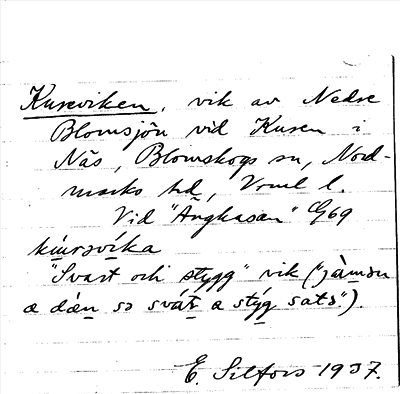 Kuseviken, vik av Nedre
Blomsjön vid Kusen i
Näs, Blomskogs sn, Nord-
marks hd, Vrml l.
Vid "Ängkasan" G69
"Svart och stygg" vik ("jàmsn
a dä́n so svát a stýg sats").
E. Silfors 1937.